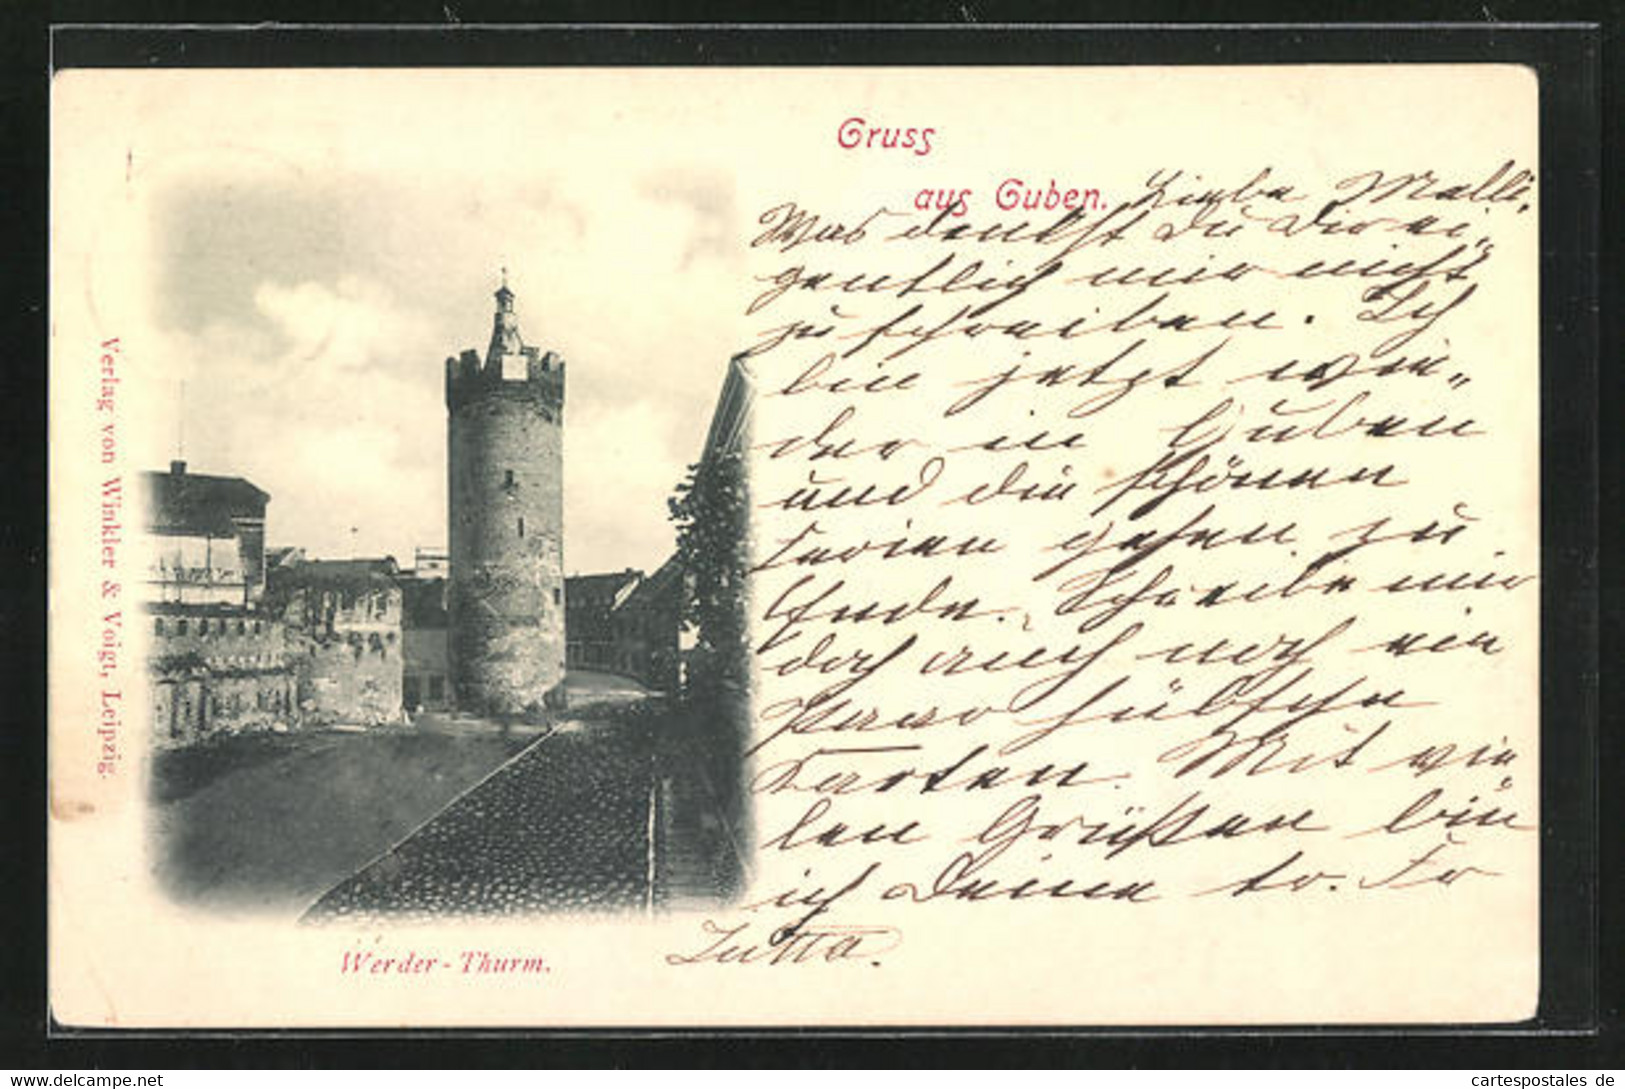 Gruss
aus Guben.
Liebe Malli,
Was denkst Du Dir ei„
gentlich mir nicht
zu schreiben. Ich
bin jetzt wie„
der in Guben
und die schönen
Ferien gehen zu
Ende. Schreibe mir
doch auch noch ein
paar hübsche
Karten. Mit vie
len Grüßen bin
ich Deine tr. Fr
Jutta.
Werder-Thurm.
Verlag von Winkler & Voigt, Leipzig.
cartespostales de